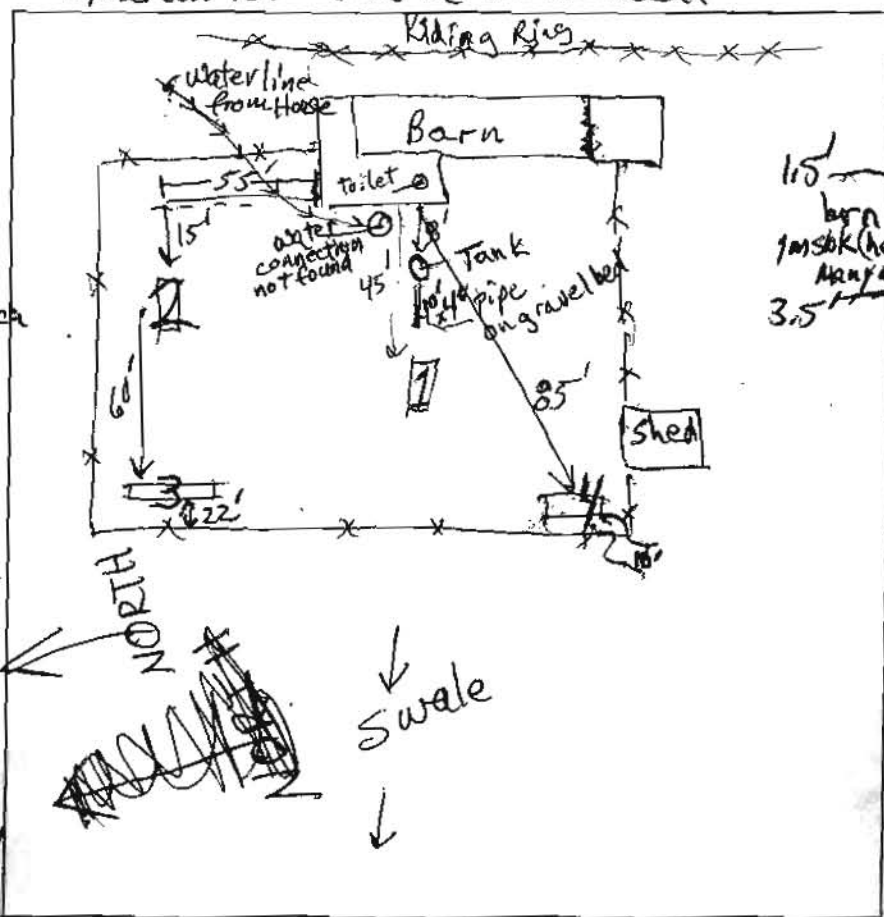 Riding Ring
Water line
from House
Barn
55'
toilet
15'
water
connection
not found
45'
8'
Tank
40' x 4" pipe
on gravel bed
2
1
60'
85'
Shed
3
22'
4
NORTH
Swale
1.5'
3.5'